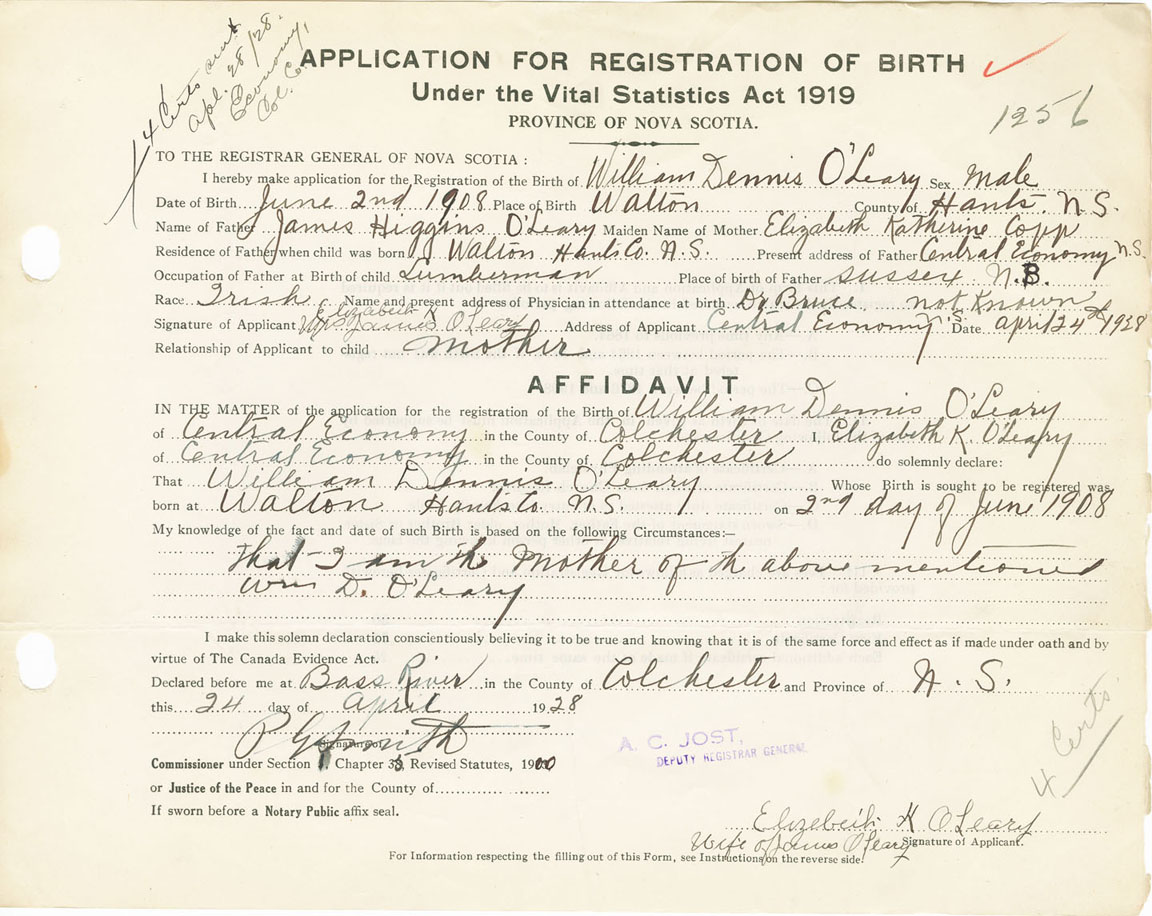 4 Certs sent
Apl. 28/28.
Economy,
Col. Co.
APPLICATION FOR REGISTRATION OF BIRTH
Under the Vital Statistics Act 1919
PROVINCE OF NOVA SCOTIA.
1256
TO THE REGISTRAR GENERAL OF NOVA SCOTIA :
I hereby make application for the Registration of the Birth of William Dennis O'Leary Sex Male
Date of Birth June 2nd 1908 Place of Birth Walton County of Hants. N.S.
Name of Father James Higgins O'Leary Maiden Name of Mother Elizabeth Katherine Copp
Residence of Father when child was born Walton Hants Co. N.S. Present address of Father Central Economy N.S.
Occupation of Father at Birth of child Lumberman Place of birth of Father Sussex N.B.
Race Irish Name and present address of Physician in attendance at birth Dr Bruce not Known
Elizabeth K
Signature of Applicant Mrs James O'Leary Address of Applicant Central Economy N.S. Date April 24th 1928
Relationship of Applicant to child Mother
AFFIDAVIT
IN THE MATTER of the application for the registration of the Birth of William Dennis O'Leary
of Central Economy in the County of Colchester I, Elizabeth K. O'Leary
of Central Economy in the County of Colchester do solemnly declare:
That William Dennis O'Leary Whose Birth is sought to be registered was
born at Walton Hants Co N.S. on 2nd day of June 1908
My knowledge of the fact and date of such Birth is based on the following Circumstances:–
that I am the Mother of th above mentioned
Wm D. O'Leary
I make this solemn declaration conscientiously believing it to be true and knowing that it is of the same force and effect as if made under oath and by
virtue of The Canada Evidence Act.
Declared before me at Bass River in the County of Colchester and Province of N.S.
this 24 day of April 1928
Signature of
Commissioner under Section 1, Chapter 38, Revised Statutes, 1900
or Justice of the Peace in and for the County of
If sworn before a Notary Public affix seal.
A. C. JOST,
DEPUTY REGISTRAR GENERAL
4 Certs
Elizebeth K O'Leary
Wife of James O'Leary Signature of Applicant.
For Information respecting the filling out of this Form, see Instructions on the reverse side.